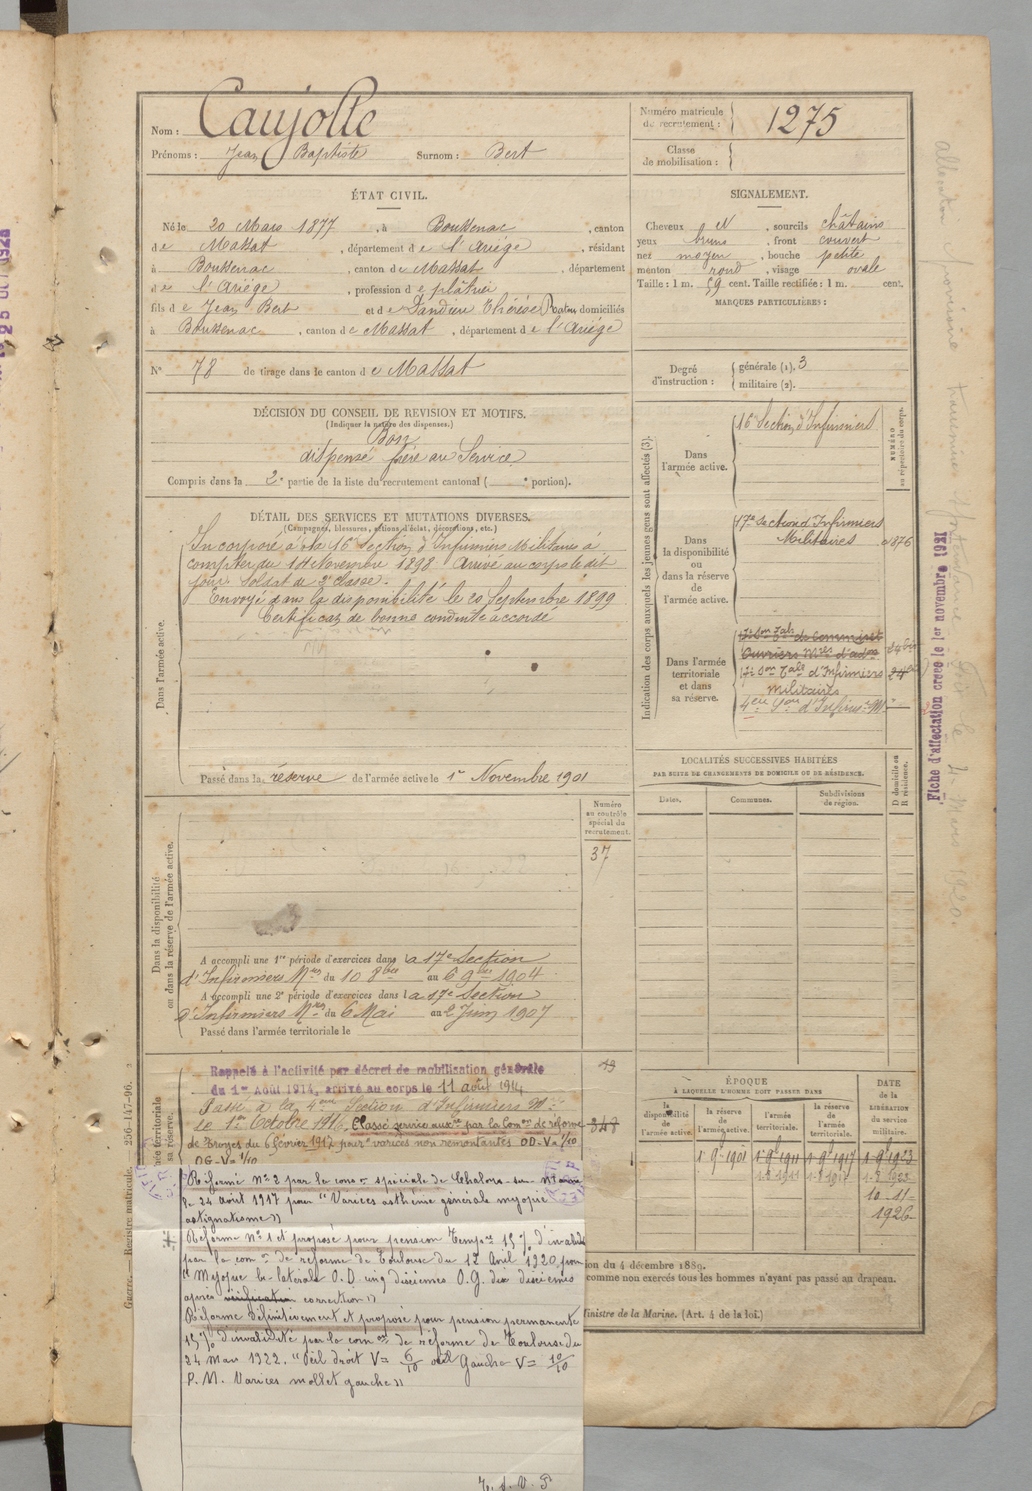 Nom : Caujolle
Prénoms : Jean Baptiste Surnom : Bert
Numéro matricule du recrutement : 1275
Classe de mobilisation :
ÉTAT CIVIL.
Né le 20 Mars 1877, à Boussenac, canton
de Massat, département de l'Ariége, résidant
à Boussenac, canton de Massat, département
de l'Ariége, profession de plâtrier
fils de Jean Bert et de Dandieu Thérèse Ratou domiciliés
à Boussenac, canton de Massat, département de l'Ariége
N° 78 de tirage dans le canton de Massat
SIGNALEMENT.
Cheveux N, sourcils châtains
yeux bruns, front couvert
nez moyen, bouche petite
menton rond, visage ovale
Taille : 1 m. 59 cent. Taille rectifiée : 1 m. cent.
MARQUES PARTICULIÈRES :
Degré d'instruction : générale (1). 3
militaire (2).
DÉCISION DU CONSEIL DE REVISION ET MOTIFS.
(Indiquer la nature des dispenses.)
Bon
dispensé frère au Service
Compris dans la 2e partie de la liste du recrutement cantonal ( e portion).
DÉTAIL DES SERVICES ET MUTATIONS DIVERSES.
(Campagnes, blessures, actions d'éclat, décorations, etc.)
Dans l'armée active.
Incorporé à la 16e Section d'Infirmiers Militaires à
compter du 14 Novembre 1898 Arrivé au corps le dit
jour. Soldat de 2e classe.
Envoyé dans la disponibilité le 20 Septembre 1899
Certificat de bonne conduite accordé
Passé dans la réserve de l'armée active le 1er Novembre 1901
Indication des corps auxquels les jeunes gens sont affectés (3).
NUMÉRO au répertoire du corps.
Dans l'armée active.
16e Section d'Infirmiers
Dans la disponibilité ou dans la réserve de l'armée active.
17e Section d'Infirmiers
Militaires
Dans l'armée territoriale et dans sa réserve.
Ouvriers Mres d'adon
17e Son Tale d'Infirmiers
militaires
LOCALITÉS SUCCESSIVES HABITÉES
PAR SUITE DE CHANGEMENTS DE DOMICILE OU DE RÉSIDENCE.
Dates. Communes. Subdivisions de région. D domicile ou R résidence.
Numéro au contrôle spécial du recrutement.
37
Dans la disponibilité ou dans la réserve de l'armée active.
A accompli une 1re période d'exercices dans la 17e Section
d'Infirmiers Mres du 10 8bre au 6 9bre 1904
A accompli une 2e période d'exercices dans la 17e Section
d'Infirmiers Mres du 6 Mai au 2 Juin 1907
Passé dans l'armée territoriale le
Rappelé à l'activité par décret de mobilisation générale
du 1er Août 1914, arrivé au corps le 11 août 1914
Passé à la 4eme Section d'Infirmiers Mres
le 1er Octobre 1916, Classé service auxre par la Comon de réforme
de Troyes du 6 février 1917 pour varices non remontantes OD-V=1/10
OG-V=1/10
Réformé N°2 par la comon spéciale de Chalons-sur-Marne
le 24 août 1917 pour "Varices asthénie générale myopie
astigmatisme"
Réforme N°1 et proposé pour pension tempre 15% d'invalidité
par la comon de réforme de Toulouse du 12 Avril 1920 pour
"Myopie bi-latérale O.D. cinq dixièmes O.G. dix dixièmes
après vérification correction"
Réformé définitivement et proposé pour pension permanente
15% d'invalidité par la comon de réforme de Toulouse du
24 Mars 1922. "Oeil droit V= 6/10 oeil Gauche V= 10/10
P.M. Varices mollet gauche"
T. S. V. P
ÉPOQUE
À LAQUELLE L'HOMME DOIT PASSER DANS
la disponibilité de l'armée active. la réserve de l'armée active. l'armée territoriale. la réserve de l'armée territoriale.
DATE DE LA LIBÉRATION du service militaire.
1er 9bre 1901 1er 9bre 1911 1er 9bre 1917 1-9bre 1923
10-11-
1926
ion du 4 décembre 1889.
comme non exercés tous les hommes n'ayant pas passé au drapeau.
Ministre de la Marine. (Art. 4 de la loi.)
Fiche d'affectation créée le 1er novembre 1921
Guerre. — Registre matricule. 256-147-96.